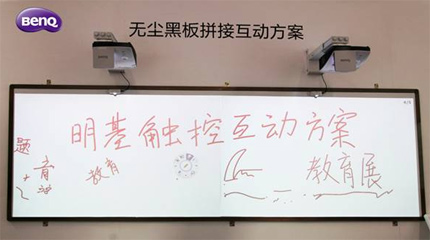 BenQ
无尘黑板拼接互动方案
明基触控互动方案
题
教育
教育展